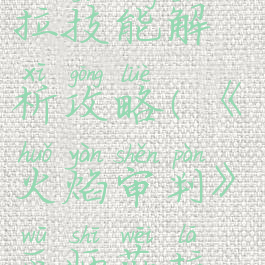 拉技能解
xī gōng lüè
析攻略(《
huǒ yàn shěn pàn
火焰审判》
wū shī wéi lā